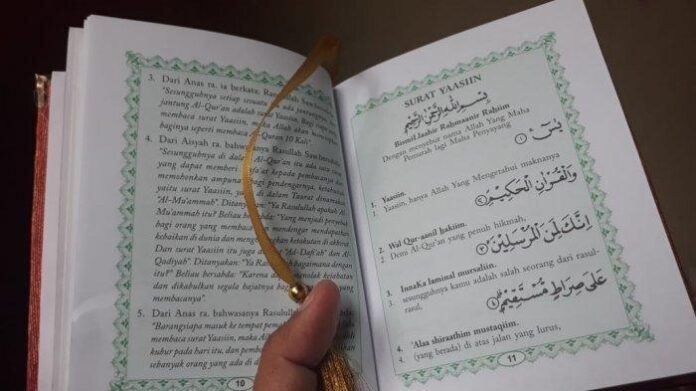 3. Dari Anas ra, ia berkata, Rasulullah Saw.
"Sesungguhnya setiap sesuatu ada
jantung Al-Qur'an adalah surat Yaasiin,
membaca surat Yaasiin, maka Allah akan
baginya seperti membaca Al-Quran 10 Kali".
4. Dari Aisyah ra, bahwasanya Rasulullah Saw.
"Sesungguhnya di dalam Al-Qur'an itu ada satu
yang dapat memberi kepada pembacanya dan
memohonkan ampunan bagi pendengarnya,
yaitu surat Yaasiin, yang di dalam Taurat dinamakan
"Al-Mu'ammah". Ditanyakan: "Ya Rasulullah apakah Al-
Mu'ammah itu? Beliau bersabda: "Yang menjadi
bagi orang yang membacanya dengan mendapatkan
kebaikan di dunia dan ketakutan di akhirat
Dan surat Yaasiin itu juga "Ad-Dafi'ah" dan Al-
Qadiyah". Ditanyakan: "Ya Rasulullah bagaimana dengan
itu?" Beliau bersabda: "Karena menolak kejahatan
dan dikabulkan segala hajatnya bagi orang yang
membacanya".
5. Dari Anas ra, bahwasanya Rasulullah
"Barangsiapa masuk ke tempat
surat Yaasiin, maka
kubur pada hari itu, dan
sebanyak orang yang ada di dalam
10
SURAT YAASIIN
بِسْمِ اللهِ الرَّحْمٰنِ الرَّحِيْمِ
Bismillaahir Rahmaanir Rahiim
Dengan menyebut nama Allah Yang Maha
Pemurah lagi Maha Penyayang
يٰسۤ ۝١
1. Yaasiin.
1. Yaasiin, hanya Allah Yang Mengetahui maknanya
وَالْقُرْاٰنِ الْحَكِيْمِ ۝٢
2. Wal Qur-aanil hakiim.
2. Demi Al-Qur'an yang penuh hikmah,
اِنَّكَ لَمِنَ الْمُرْسَلِيْنَ ۝٣
3. Innaka laminal mursaliin.
3. sesungguhnya kamu adalah salah seorang dari rasul-
rasul,
عَلٰى صِرَاطٍ مُّسْتَقِيْمٍ ۝٤
4. 'Alaa shiraathim mustaqiim.
4. (yang berada) di atas jalan yang lurus,
11